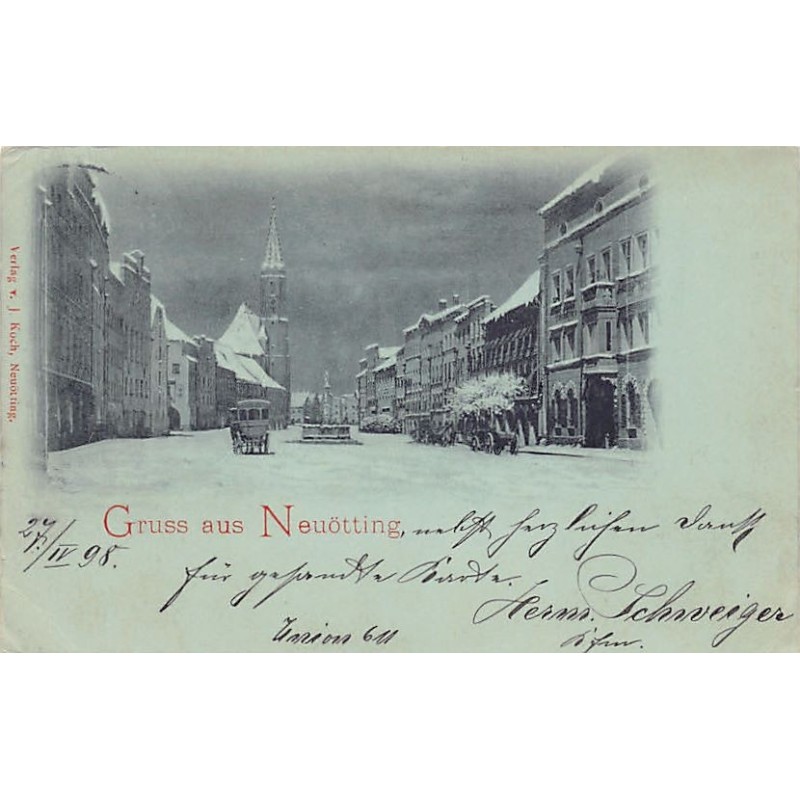 Verlag v. J Koch, Neuötting.
Gruss aus Neuötting, nebst herzlichen Dank
27/IV 98.
für gesandte Karte.
Herm. Schweiger
Kfm.
Union 611